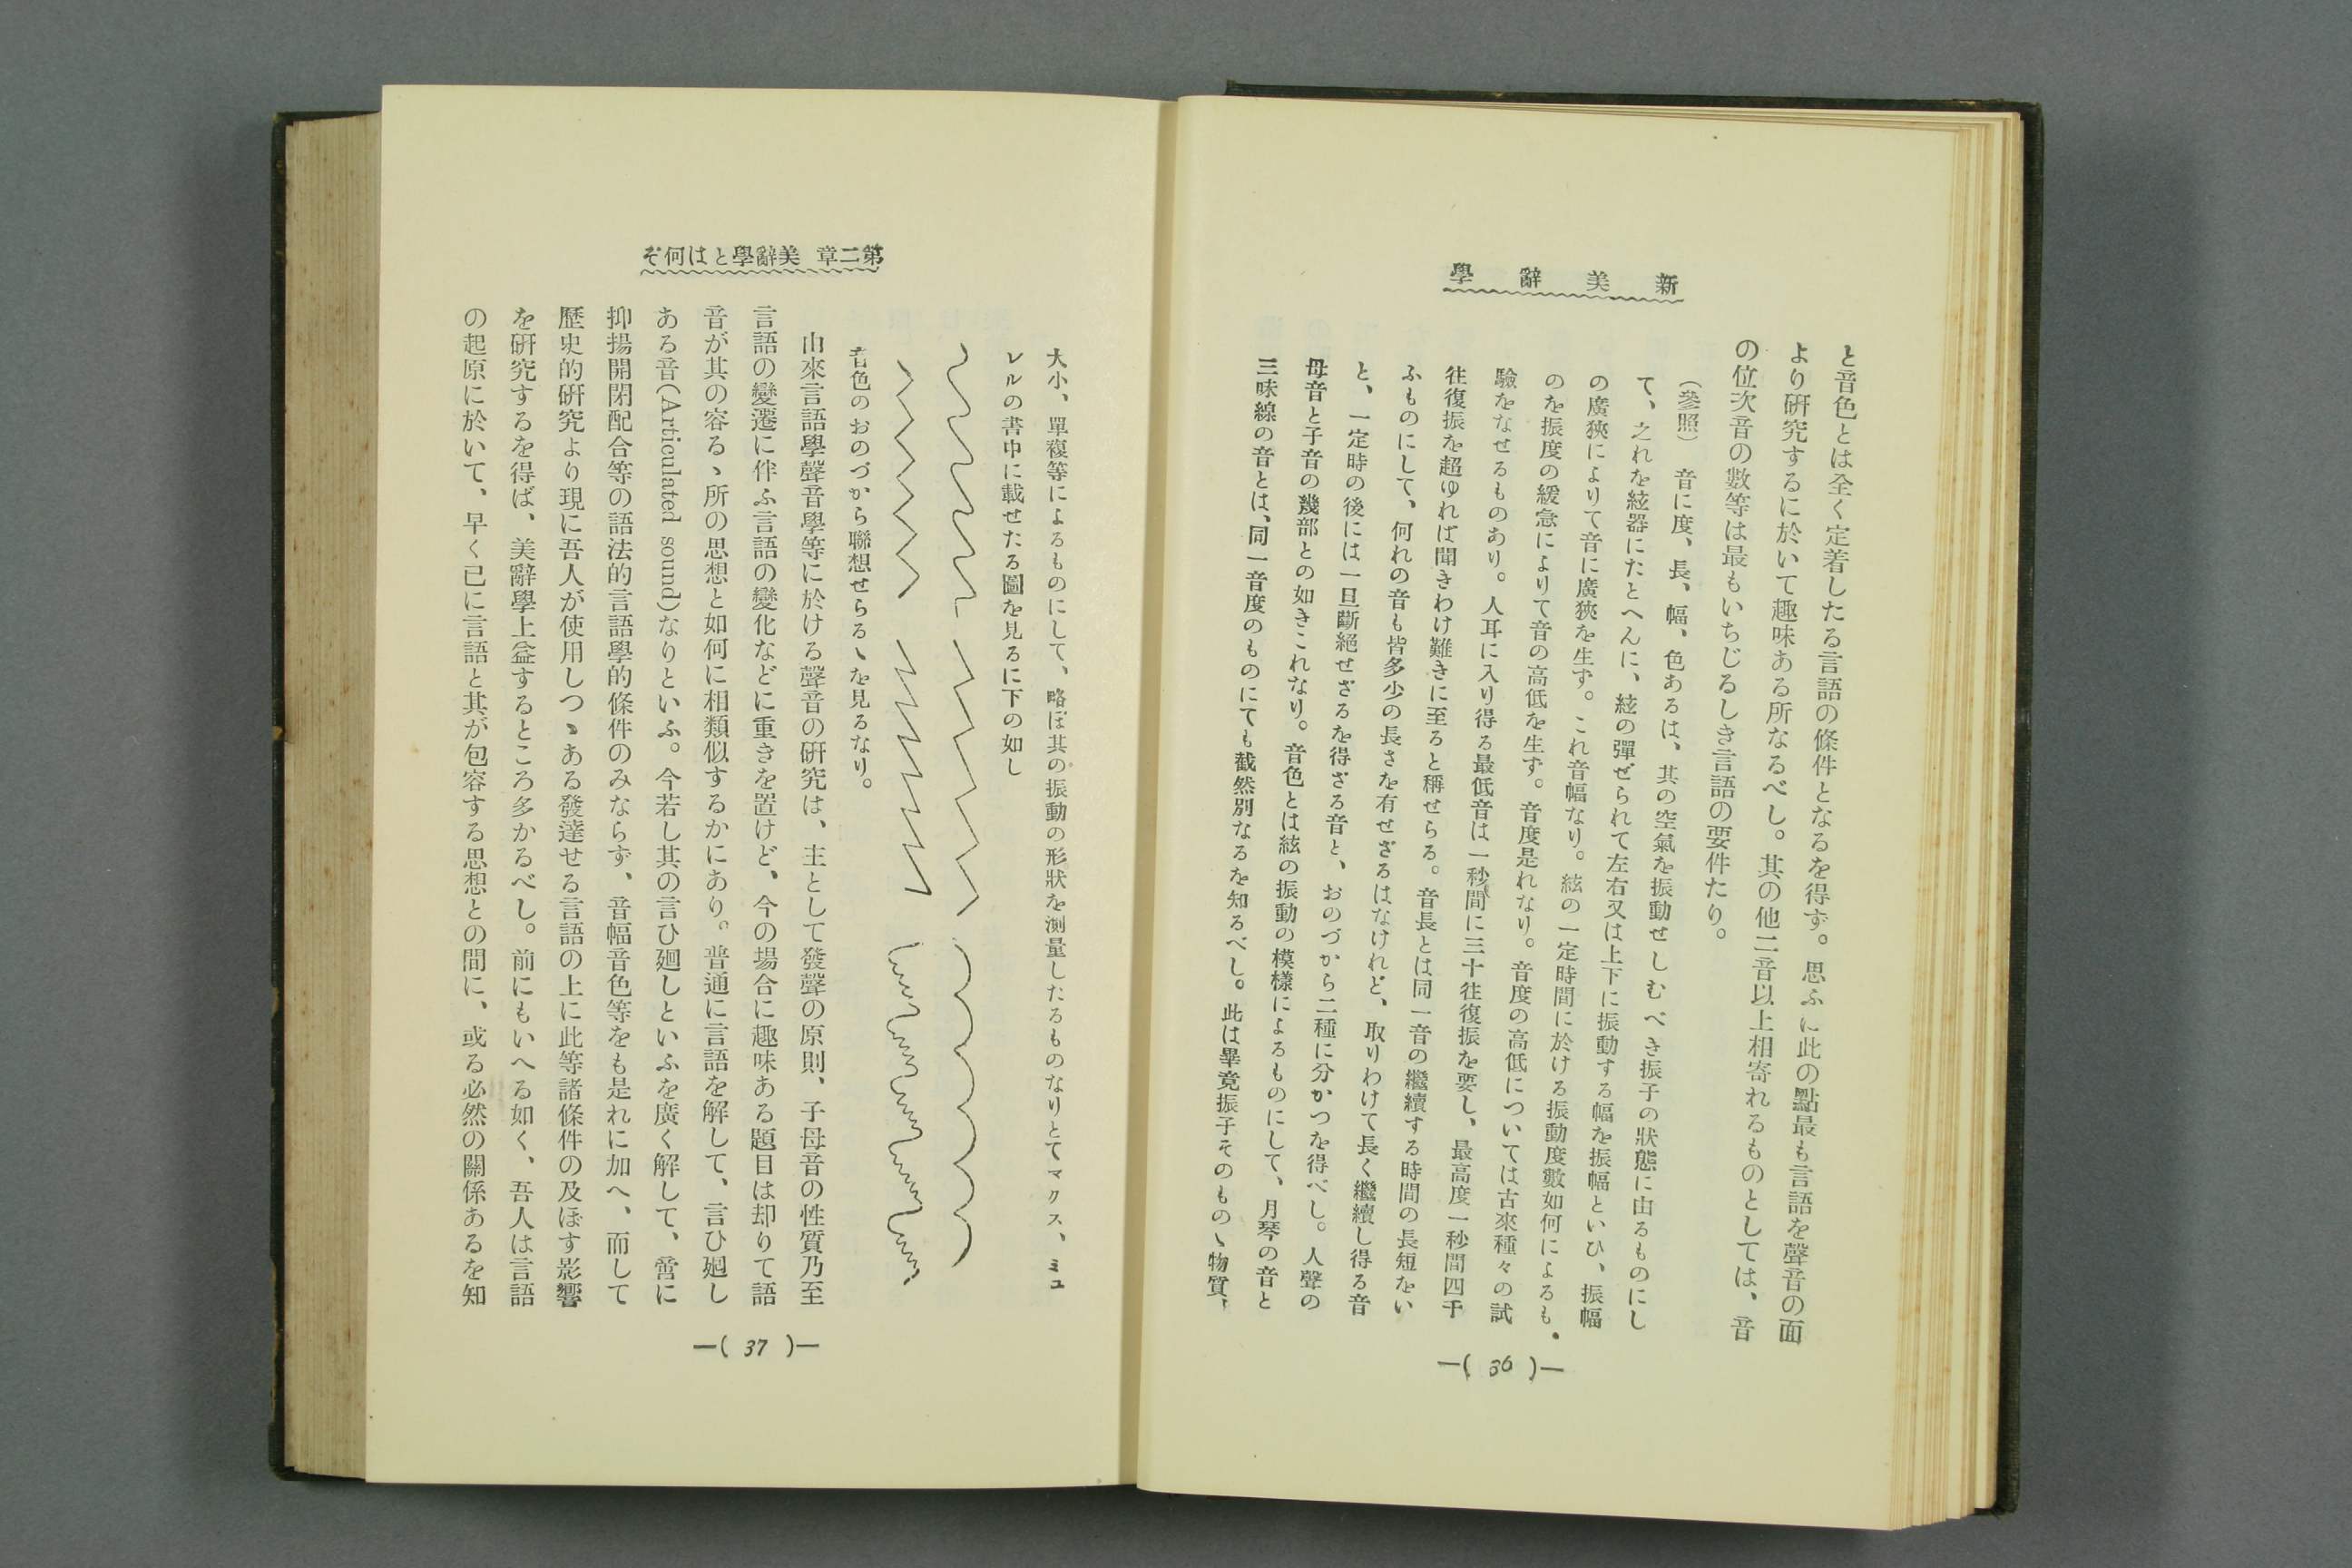 新美辭學
と音色とは全く定着したる言語の條件となるを得ず。思ふに此の點最も言語を聲音の面
より研究するに於いて趣味ある所なるべし。其の他二音以上相寄れるものとしては、音
の位次音の數等は最もいちじるしき言語の要件たり。
(參照) 音に度、長、幅、色あるは、其の空氣を振動せしむべき振子の狀態に由るものにし
て、之れを絃器にたとへんに、絃の彈ぜられて左右又は上下に振動する幅を振幅といひ、振幅
の廣狹によりて音に廣狹を生ず。これ音幅なり。絃の一定時間に於ける振動度數如何によるも
のを振度の緩急によりて音の高低を生ず。音度是れなり。音度の高低については古來種々の試
驗をなせるものあり。人耳に入り得る最低音は一秒間に三十往復振を要し、最高度一秒間四千
往復振を超ゆれば聞きわけ難きに至ると稱せらる。音長とは同一音の繼續する時間の長短をい
ふものにして、何れの音も皆多少の長さを有せざるはなけれど、取りわけて長く繼續し得る音
と、一定時の後には一旦斷絕せざるを得ざる音と、おのづから二種に分かつを得べし。人聲の
母音と子音の幾部との如きこれなり。音色とは絃の振動の模樣によるものにして、月琴の音と
三味線の音とは、同一音度のものにても截然別なるを知るべし。此は畢竟振子そのものゝ物質、
―( 36 )―
第二章 美辭學とは何ぞ
大小、單複等によるものにして、略ぼ其の振動の形狀を測量したるものなりとてマクス、ミュ
レルの書中に載せたる圖を見るに下の如し
音色のおのづから聯想せらるゝを見るなり。
由來言語學聲音學等に於ける聲音の研究は、主として發聲の原則、子母音の性質乃至
言語の變遷に伴ふ言語の變化などに重きを置けど、今の場合に趣味ある題目は却りて語
音が其の容るゝ所の思想と如何に相類似するかにあり。普通に言語を解して、言ひ廻し
ある音(Articulated sound)なりといふ。今若し其の言ひ廻しといふを廣く解して、啻に
抑揚開閉配合等の語法的言語學的條件のみならず、音幅音色等をも是れに加へ、而して
歷史的研究より現に吾人が使用しつゝある發達せる言語の上に此等諸條件の及ぼす影響
を研究するを得ば、美辭學上益するところ多かるべし。前にもいへる如く、吾人は言語
の起原に於いて、早く已に言語と其が包容する思想との間に、或る必然の關係あるを知
―( 37 )―